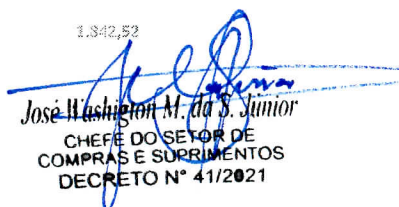 1.842,52
José Washigton M. da S. Júnior
CHEFE DO SETOR DE
COMPRAS E SUPRIMENTOS
DECRETO N° 41/2021